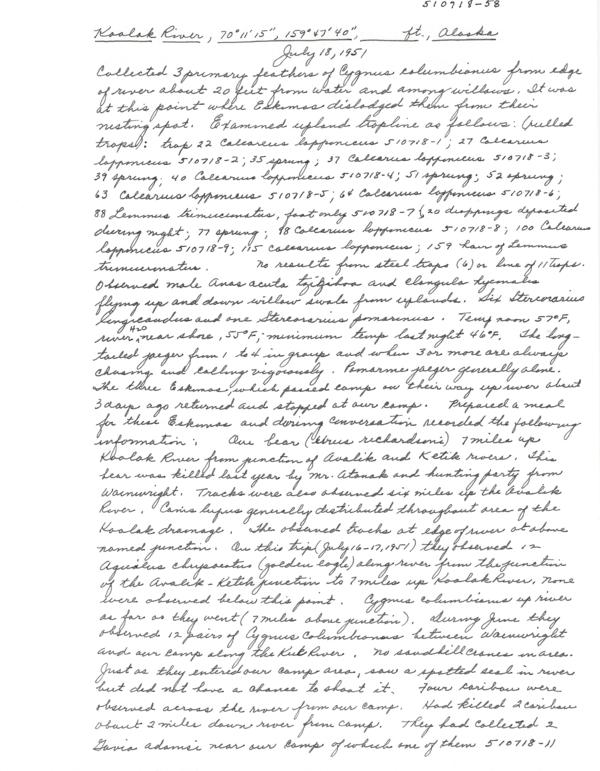 510718-58
Koalak River, 70°11'15", 159°47'40", ft., Alaska
July 18, 1951
Collected 3 primary feathers of Cygnus columbianus from edge
of river about 20 feet from water and among willows. It was
at this point where Eskimos dislodged them from their
nesting spot. Examined upland trapline as follows: (pulled
traps): trap 22 Calcarius lapponicus 510718-1; 27 Calcarius
lapponicus 510718-2; 35 sprung; 37 Calcarius lapponicus 510718-3;
39 sprung; 40 Calcarius lapponicus 510718-4; 51 sprung; 52 sprung;
63 Calcarius lapponicus 510718-5; 64 Calcarius lapponicus 510718-6;
88 Lemmus trimucronatus, foot only 510718-7 20 droppings deposited
during night; 77 sprung; 98 Calcarius lapponicus 510718-8; 100 Calcarius
lapponicus 510718-9; 115 Calcarius lapponicus; 159 hair of Lemmus
trimucronatus. No results from steel traps (6) or line of 11 traps.
Observed male Anas acuta tzitzihoa and Clangula hyemalis
flying up and down willow swale from uplands. Six Stercorarius
longicaudus and one Stercorarius pomarinus. Temp noon 57°F,
river H2O near shore, 55°F; minimum temp last night 46°F. The long-
tailed jaeger from 1 to 4 in group and when 3 or more are always
chasing and calling vigorously. Pomarine jaeger generally alone.
The three Eskimos, which passed camp on their way up river about
3 days ago returned and stopped at our camp. Prepared a meal
for these Eskimos and during conversation recorded the following
information: One bear (Ursus richardsoni) 7 miles up
Koalak River from junction of Avalik and Ketik rivers. This
bear was killed last year by Mr. Atanak and hunting party from
Wainwright. Tracks were also observed six miles up the Avalak
River. Canis lupus generally distributed throughout area of the
Koalak drainage. The observed tracks at edge of river at above
named junction. On this trip (July 16-17, 1951) they observed 12
Aquilus chrysaetos (golden eagle) along river from the junction
of the Avalik-Ketik junction to 7 miles up Koalak River, none
were observed below this point. Cygnus columbianus up river
as far as they went (7 miles above junction). During June they
observed 12 pairs of Cygnus columbianus between Wainwright
and our camp along the Kuk River. No sandhill cranes in area.
Just as they entered our camp area, saw a spotted seal in river
but did not have a chance to shoot it. Four caribou were
observed across the river from our camp. Had killed 2 caribou
about 2 miles down river from camp. They had collected 2
Gavia adamsi near our camp of which one of them 510718-11